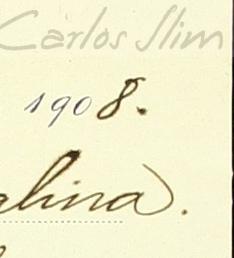 Carlos Slim
1908.
alina.